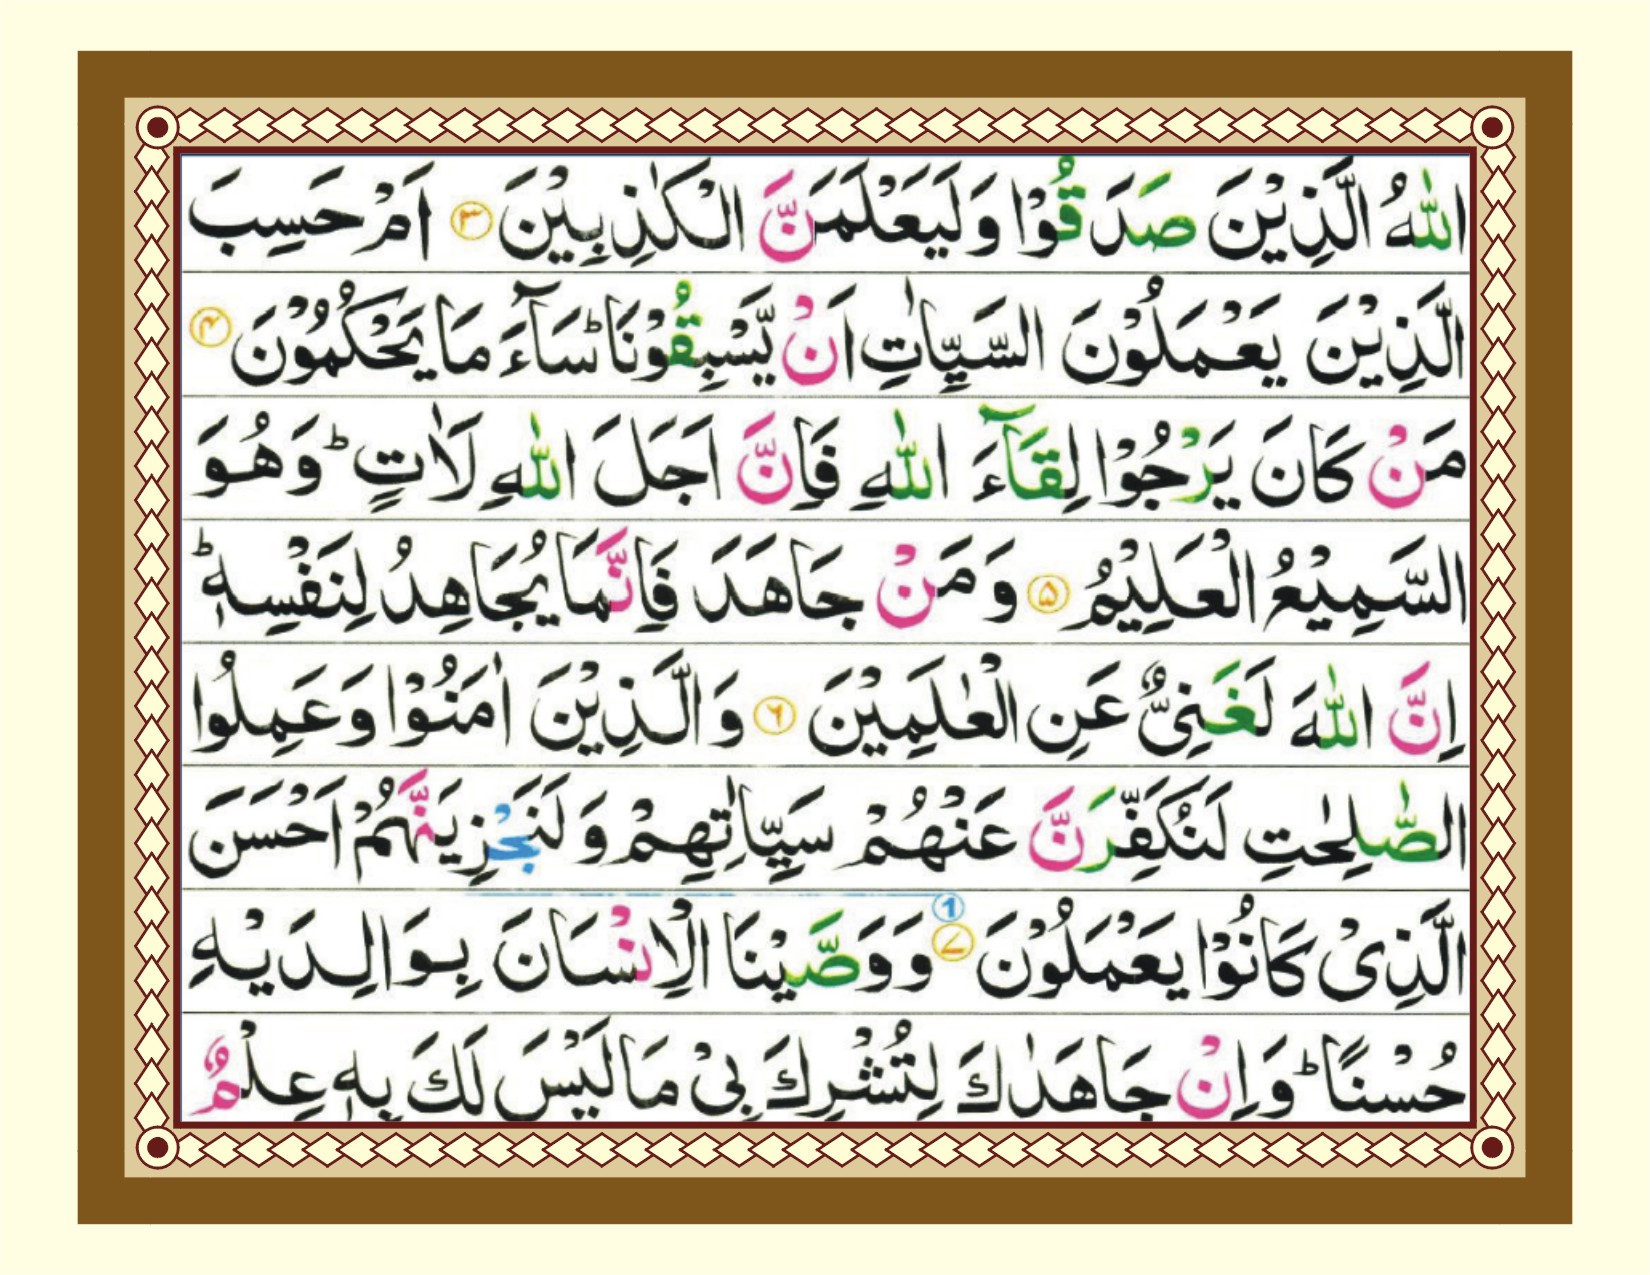 اللّٰهُ الَّذِيْنَ صَدَقُوْا وَلَيَعْلَمَنَّ الْكٰذِبِيْنَ ۝٣ اَمْ حَسِبَ
الَّذِيْنَ يَعْمَلُوْنَ السَّيِّاٰتِ اَنْ يَّسْبِقُوْنَا ؕ سَآءَ مَا يَحْكُمُوْنَ ۝٤
مَنْ كَانَ يَرْجُوْا لِقَآءَ اللّٰهِ فَاِنَّ اَجَلَ اللّٰهِ لَاٰتٍ ؕ وَهُوَ
السَّمِيْعُ الْعَلِيْمُ ۝٥ وَمَنْ جَاهَدَ فَاِنَّمَا يُجَاهِدُ لِنَفْسِهٖ ؕ
اِنَّ اللّٰهَ لَغَنِيٌّ عَنِ الْعٰلَمِيْنَ ۝٦ وَالَّذِيْنَ اٰمَنُوْا وَعَمِلُوا
الصّٰلِحٰتِ لَنُكَفِّرَنَّ عَنْهُمْ سَيِّاٰتِهِمْ وَلَنَجْزِيَنَّهُمْ اَحْسَنَ
الَّذِيْ كَانُوْا يَعْمَلُوْنَ ۝٧ 1 وَوَصَّيْنَا الْاِنْسَانَ بِوَالِدَيْهِ
حُسْنًا ؕ وَاِنْ جَاهَدٰكَ لِتُشْرِكَ بِيْ مَا لَيْسَ لَكَ بِهٖ عِلْمٌ